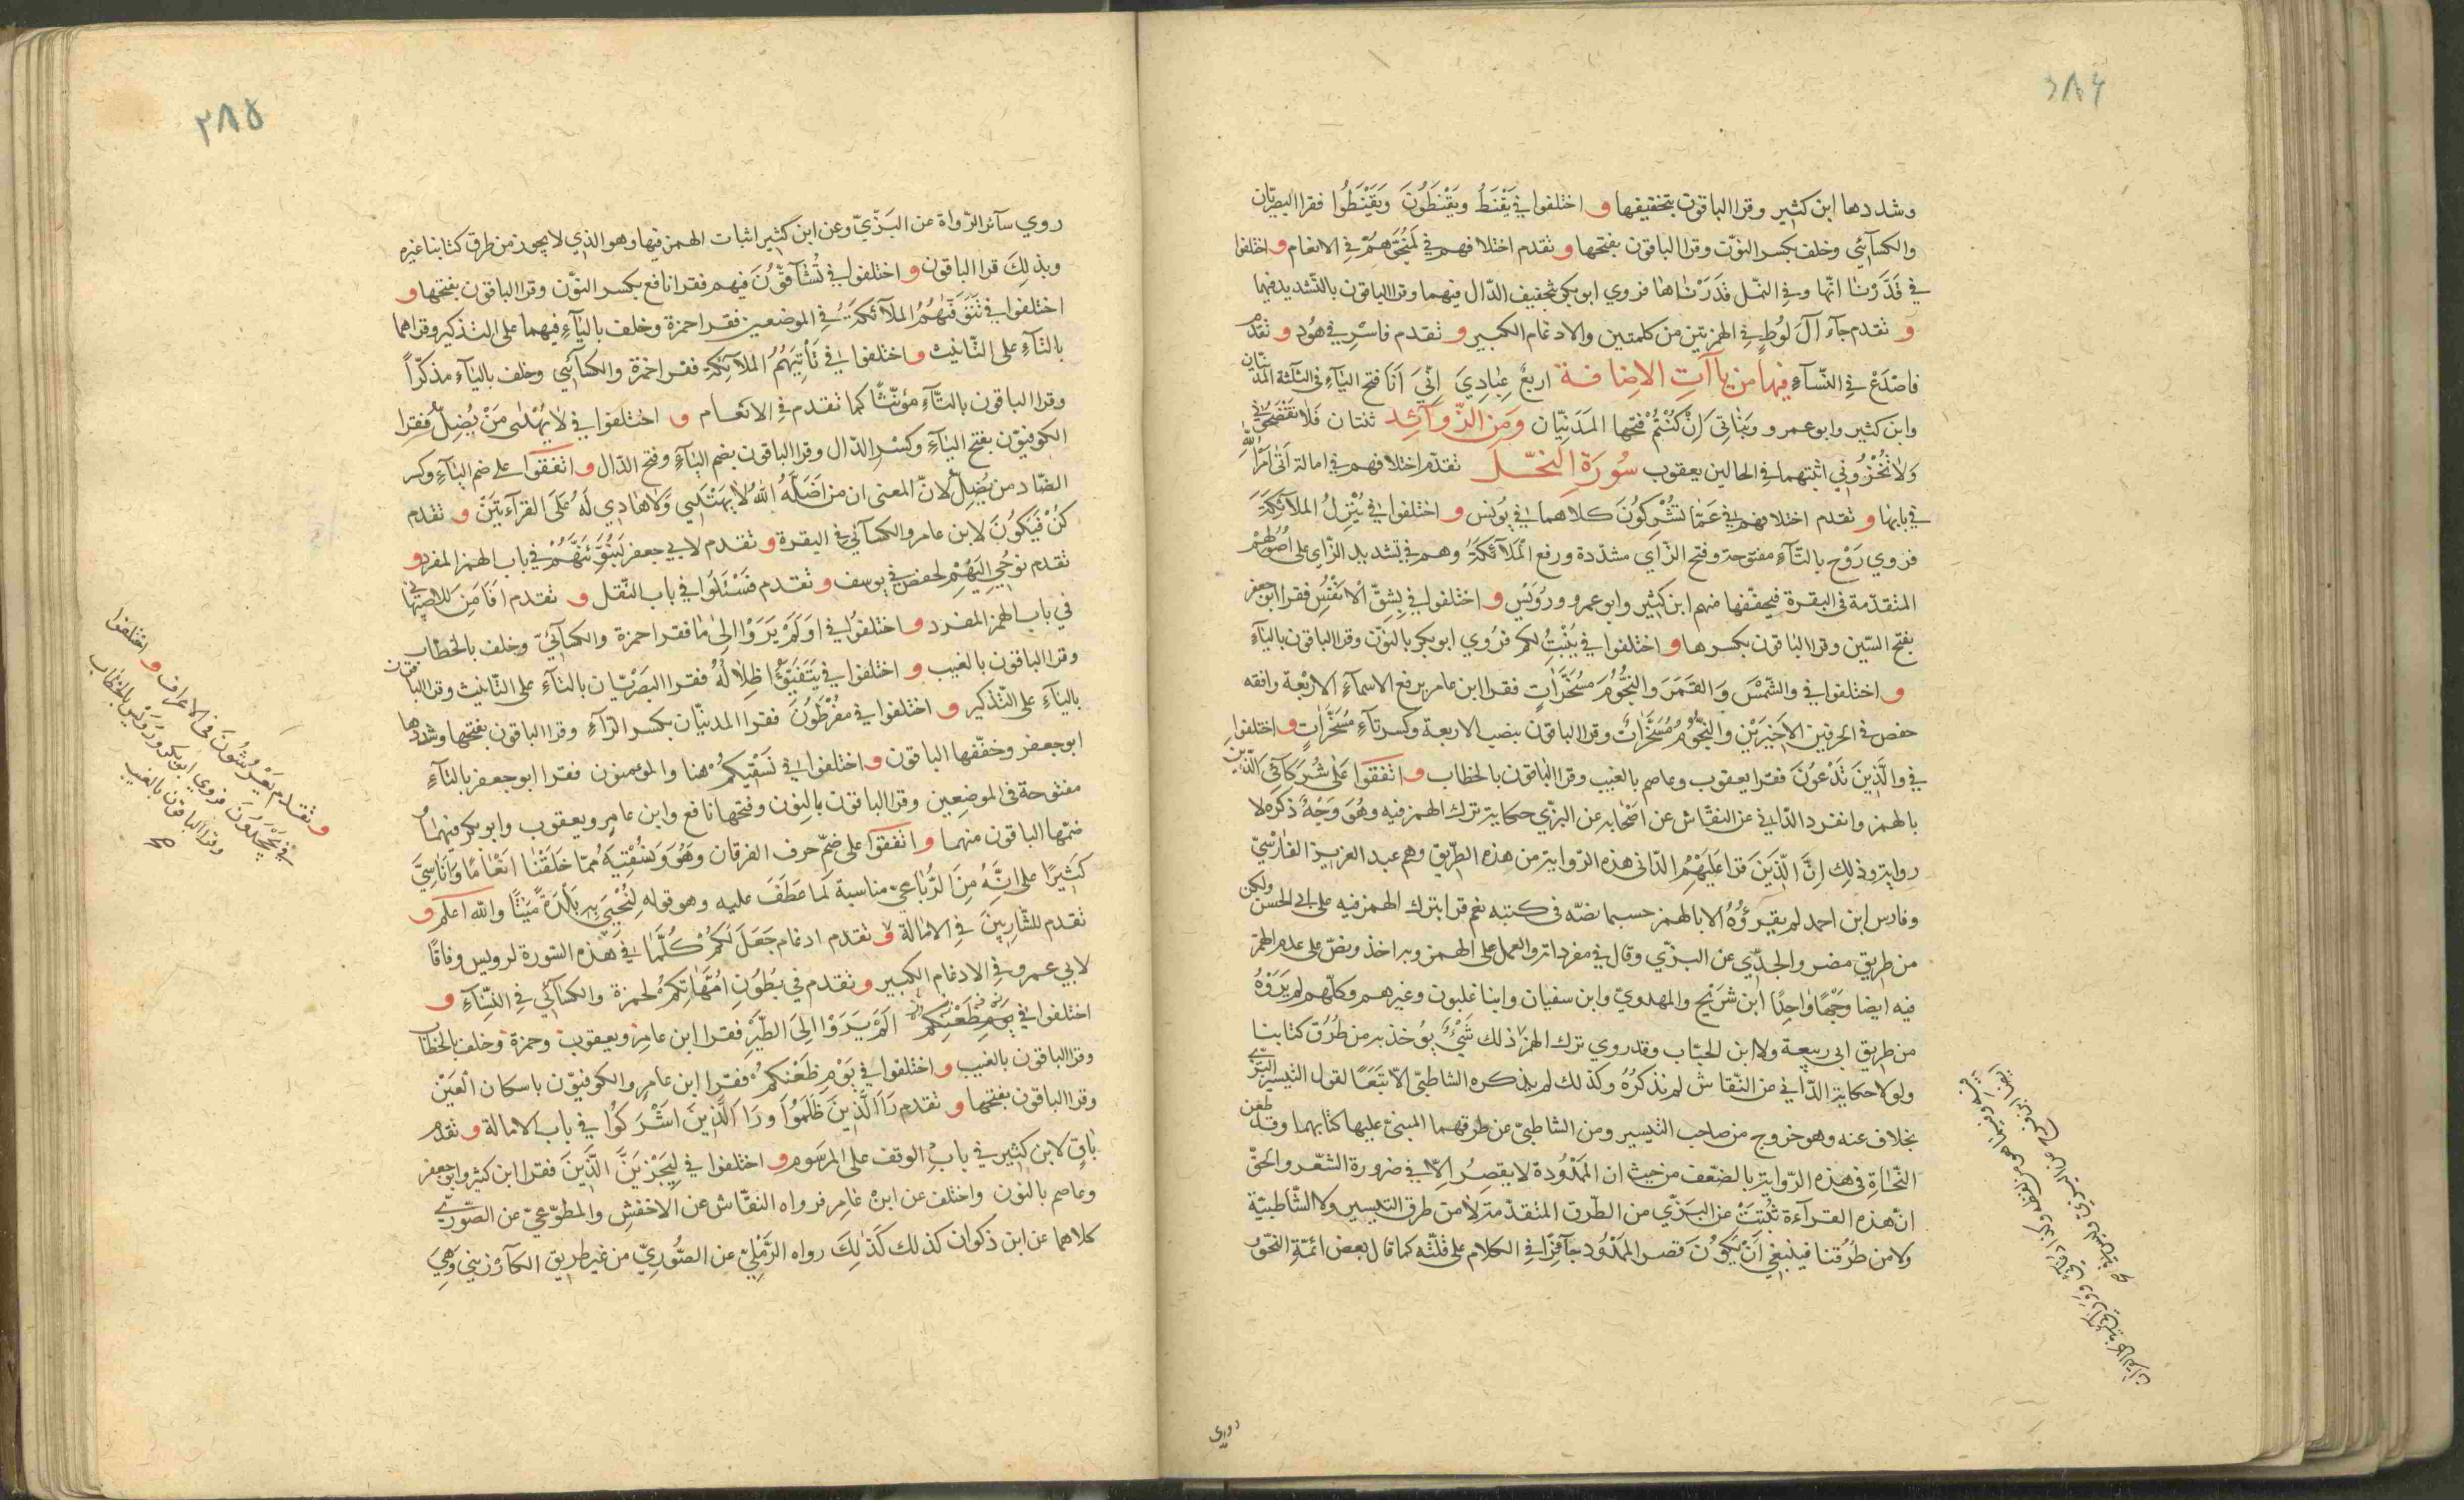 ٢٨٤
وشددها ابن كثير وقرا الباقون بتخفيفها و اختلفوا في يَقْنَطُ ويَقْنَطُونَ وَتَقْنَطُوا فقرا البصريّان
والكسآئي وخلف بكسر النوّن وقرا الباقون بفتحها و تقدم اختلافهم في لَمُنَجُّوهُمْ في الانعام و اختلفوا
في قَدَّرْنَا انّها وفي النمل قَدَرْنَاهَا فروي ابو بكر بتخفيف الدّال فيهما وقرا الباقون بالتّشديد فيهما
و تقدم جآء آلَ لُوطٍ في الهمزتين من كلمتين والادغام الكبير و تقدم فاسْرِ في هُود و تقدم
فاصْدَعْ في النّسآء فيها من يآآتِ الاِضَافَة اربعٌ عِبَادِيَ اِنّيَ اَنَا فتح اليآء في الثلثة المدنيّان
وابن كثير وابو عمرو وبَنَاتِيَ اِنْ كُنْتُمْ فتحها المَدَنِيّان وَمِنَ الزّوآئد ثنتان فَلا تَفْضَحُونِ
وَلا تُخْزُونِي اثبتهما في الحالين يعقوب سُورَة النَّحْل تقدّم اختلافهم في امالة اَتَى اَمْرُ اللّٰهِ
في بابها و تقدم اختلافهم في عَمّا تُشْرِكُونَ كلاهما في يُونس و اختلفوا في يُنَزِّلُ الملآئكَةَ
فروي رَوْح بالتّآء مفتوحة وفتح الزّاي مشدّدة ورفع الملآئكَةُ وهم في تشديد الزّاي على اُصُولِهِمْ
المتقدّمة في البقرة فيخفّفها منهم ابن كثير وابو عمرو ورُوَيْس و اختلفوا في بِشِقّ الاَنْفُسِ فقرا ابو جعفر
بفتح الشّين وقرا الباقون بكسرها و اختلفوا في يُنْبِتُ لكم فروي ابو بكر بالنوّن وقرا الباقون باليآء
و اختلفوا في والشَّمْسَ وَالقَمَرَ والنجُّومَ مُسَخَّرَاتٍ فقرا ابن عامر برفع الاسمآء الاربعة وافقه
حفص في الحرفين الاَخيرَيْنِ والنجُّومُ مُسَخَّرَاتٌ وقرا الباقون بنصب الاربعة وكسر تآء مُسَخَّرَاتٍ و اختلفوا
في والَّذِينَ تَدْعُونَ فقرا يعقوب وعاصم بالغيب وقرا الباقون بالخطاب و اتفقوا على شُرَكَآئِيَ الّذِينَ
بالهمز وانفرد الدّاني عن النقّاش عن اَصْحَابه عن البزّي حكاية ترك الهمز فيه وهُوَ وَجْهٌ ذكره لا
رواية وذلك اِنَّ الّذِينَ قرا عَلَيْهِمُ الدّاني هذه الرّواية من هذه الطّريق وهم عبد العزيز الفارْسِيّ
وفارس ابن احمد لم يقرؤُهُ الا بالهمز حسبما نصّه في كتبه نعم قرا بترك الهمز فيه على ابي الحسن ولكن
من طريق مضر والجنديّ عن البزّي وقال في مفرداته والعمل على الهمز وبه اخذ ونصّ على عدم الهمز
فيه ايضا وَجْهًا وَاحِدًا ابن شَرَيْح والمهدويّ وابن سفيان وابنا غلبون وغيرهم وكلّهم لم يَرَوْهُ
من طريق ابي ربيعة ولا ابن الحبّاب وقد روي ترك الهمز ذلك شَيْءٌ يؤخذ به من طُرُق كتابنا
ولولا حكاية الدّاني عن النقّاش لم نذكرْهُ وكذلك لم يذكره الشاطبيّ الاّ تَبَعًا لقول التيسير البزّي
بخلاف عنه وهو خروج من صاحب التيسير ومن الشاطبيّ عن طرقهما المبنيّ عليها كتابهما وقد طعن
النّحَاة في هذه الرّواية بالضّعف من حيث ان المَمْدُودة لا يقصر الاّ في ضرورة الشّعر والحقّ
انّ هذه القرآءة ثَبَتَتْ عن البَزّي من الطّرق المتقدّمة لا من طرق التيسير ولا الشّاطبيّة
ولا من طُرُقنا فينبغي اَنْ يَكُونَ قصر الممْدُود جآئزًا في الكلام على قلّته كما قال بعض ائمّة النّحو
روي
٢٨٥
روي سآئر الرّواة عن البَزّيّ وعن ابن كثير اثبات الهمز فيها وهو الذي لا يجوز من طرق كتابنا غيره
وبذلكَ قرا الباقون و اختلفوا في تُشَآقّونَ فيهم فقرا نافع بكسر النّون وقرا الباقون بفتحها و
اختلفوا في تَتَوَفَّيهُمُ الملآئكَةُ في الموضعين فقرا حمزة وخلف باليآء فيهما على التذكير وقراهما
بالتآء على التّانيث و اختلفوا في تَأتِيَهُمُ الملآئكة فقرا حمزة والكسآئي وخلف باليآء مذكّرًا
وقرا الباقون بالتّآء مؤنّثًا كما تقدم في الانعام و اختلفوا في لا يَهْدِى مَنْ يُضِلُّ فقرا
الكوفيوّن بفتح اليآء وكسر الدّال وقرا الباقون بضم اليآء وفتح الدّال و اتفقوا على ضم اليآء وكسر
الضّاد من يُضِلُّ لانّ المعنى ان من اَضَلَّهُ اللّٰهُ لا يَهْتَدِي وَلا هَادِيَ لَهُ على القرآءتيَنْ و تقدم
كُنْ فَيَكوُنَ لابن عامر والكسآئي في البقرة و تقدم لابي جعفر لَنُبَوِّئَنَّهُمْ في باب الهمز المفرد و
تقدم نوُحي اليَهْمِ لحفص في يوسف و تقدم فَسْئَلوُا في باب النّقل و تقدم افَاَمِنَ للاصبهاني
في باب الهمز المفرد و اختلفوُا في اوَلَمْ يَرَوْا اِلىٰ مَا فقرا حمزة والكسآئيّ وخلف بالخطاب
وقرا الباقون بالغيب و اختلفوا في يَتَفَيَّؤُا ظِلالُهُ فقرا البصَرْيّان بالتآء على التّانيث وقرا الباقون
باليآء على التّذكير و اختلفوا في مُفْرَطوُنَ فقرا المدنيّان بكسر الرّآء وقرا الباقون بفتحها وشدّدها
ابو جعفر وخفّفها الباقون و اختلفوا في نَسْقيكُمْ هنا والمؤمنون فقرا ابو جعفر بالتآء
مفتوحة في الموضعين وقرا الباقون بالنون وفتحها نافع وابن عامر ويعقوب وابو بكر فيهما
ضمّها الباقون منهما و اتفقوا على ضمّ حرف الفرقان وَهُوَ وَنُسْقِيَهُ ممّا خَلَقْنَا اَنْعَامًا وَاَنَاسِيَّ
كثيَرًا على انّهُ مِنَ الرُّبَاعيّ مناسبة لَما عَطَفَ عليه وهو قوله لِنُحْيِيَ بِهِ بَلْدَةً مَيْتًا والله اعلم و
تقدم للشّاربينَ في الامالة و تقدم ادغام جَعَلَ لَكُمْ كُلَّمَا في هَذه السّورة لرويس وفاقًا
لابي عمرو في الادغام الكبير و تقدم في بُطُونِ اُمَّهَاتِكُمْ لحمزة والكسآئي في النّسآء و
اختلفوا في يَوم ظَعْنِكم اَلَمْ يَرَوْا اِلَى الطَّيْر فقرا ابن عامر ويعقوب وحمزة وخلف بالخطاب
وقرا الباقون بالغيب و اختلفوا في يَوْمَ ظَعْنِكُمْ فقرا ابن عامر والكوفيوّن باسكان العَيْن
وقرا الباقون بفتحها و تقدم رَاَ الّذينَ ظَلَموُا وَرَاَ الّذِينَ اَشْرَكوُا في باب الامالة و تقدم
بَاقٍ لابن كثير في باب الوقف على المرسوم و اختلفوا في لَيَجْزِيَنَّ الّذِينَ فقرا ابن كثير وابو جعفر
وعاصم بالنون واختلف عن ابن عامر فرواه النقّاش عن الاخفش والمطوّعيّ عن الصّوريّ
كلاهما عن ابن ذكوان كذلك كَذٰلِكَ رواه الرَّمْلِيّ عن الصُّوريّ من غير طريق الكآرزيني وَهِيَ
و تقدم يَعْرِشُونَ في الاعراف و اختلفوا
في يَجْحَدُونَ فروي ابو بكر ورويس بالخطاب
وقرا الباقون بالغيب
صح